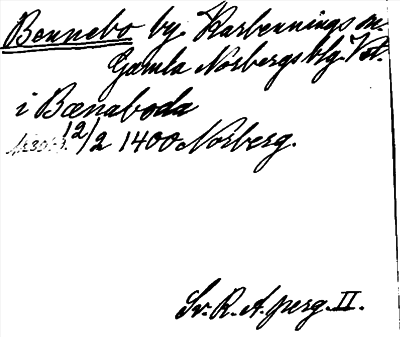 Bennebo by Karbennings sn.
Gamla Norbergs blg. Vstm.
i Bænaboda
12/2 1400 Norberg.
Sv. R. A. perg. II.